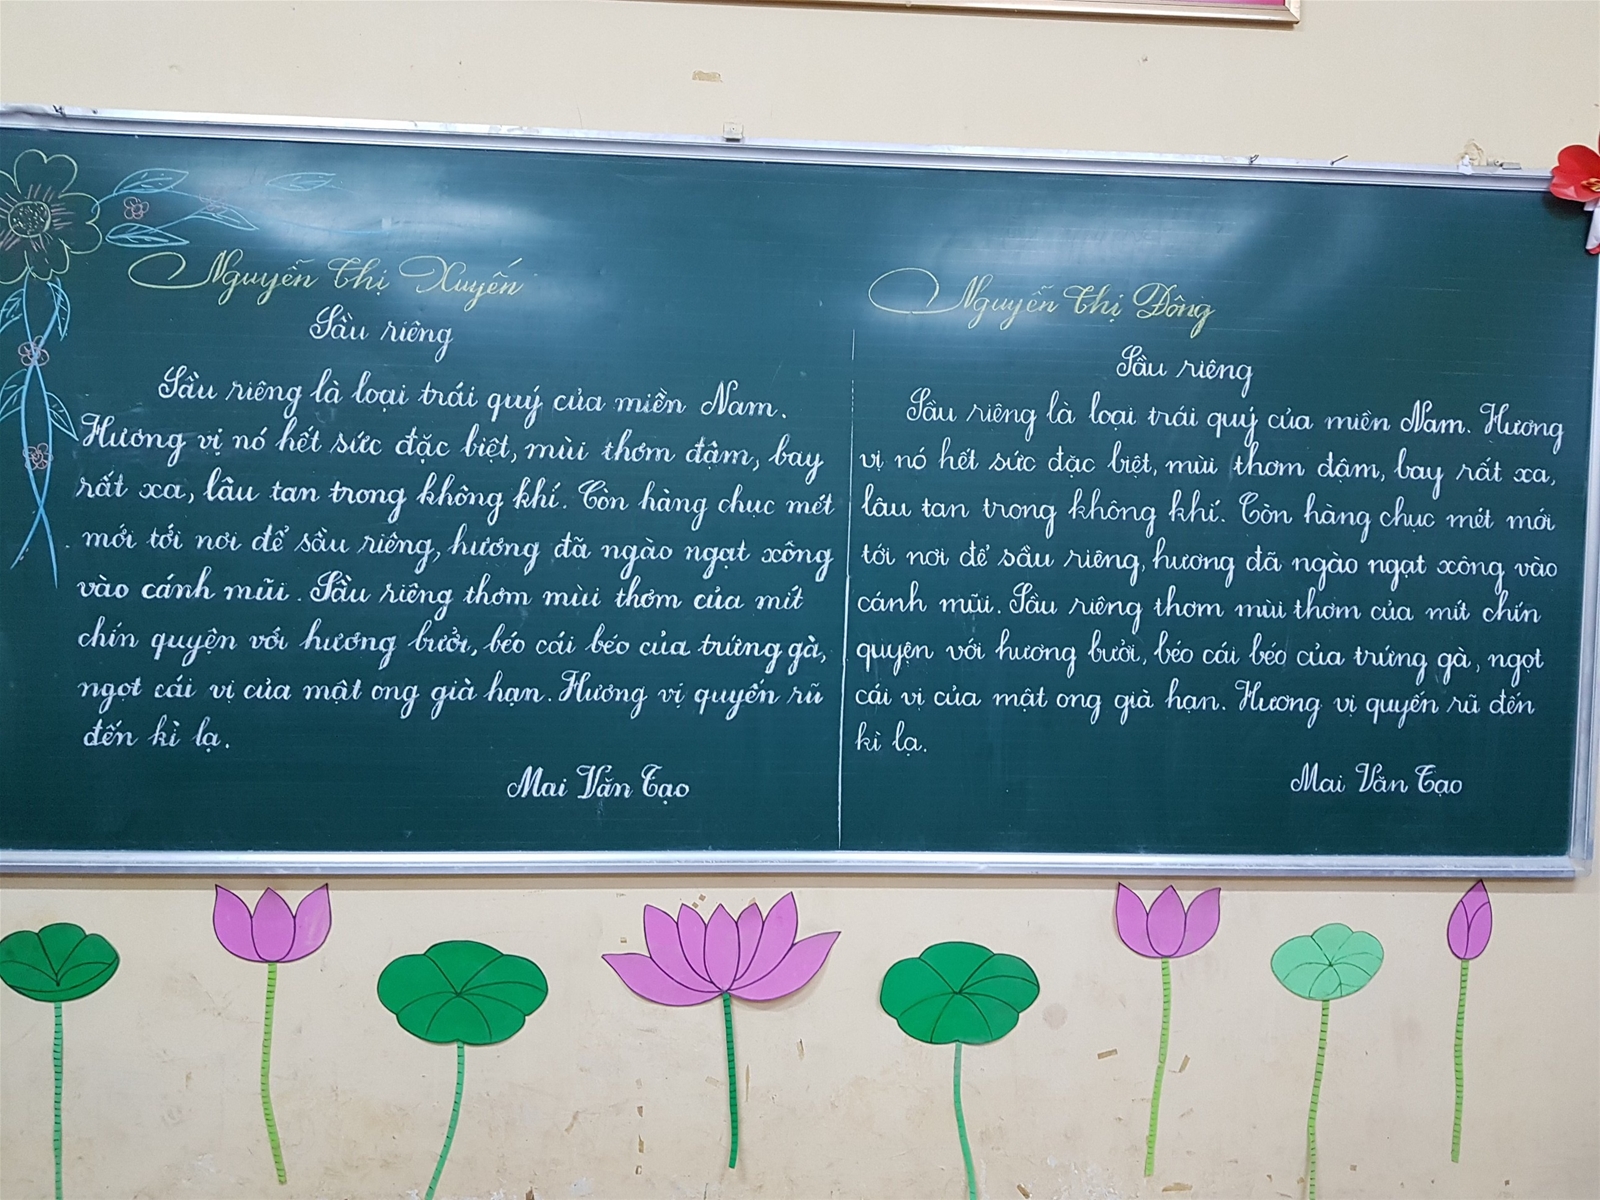 Nguyễn Thị Xuyến
Sầu riêng
Sầu riêng là loại trái quý của miền Nam.
Hương vị nó hết sức đặc biệt, mùi thơm đậm, bay
rất xa, lâu tan trong không khí. Còn hàng chục mét
mới tới nơi để sầu riêng, hương đã ngào ngạt xông
vào cánh mũi. Sầu riêng thơm mùi thơm của mít
chín quyện với hương bưởi, béo cái béo của trứng gà,
ngọt cái vị của mật ong già hạn. Hương vị quyến rũ
đến kì lạ.
Mai Văn Tạo
Nguyễn Thị Đông
Sầu riêng
Sầu riêng là loại trái quý của miền Nam. Hương
vị nó hết sức đặc biệt, mùi thơm đậm, bay rất xa,
lâu tan trong không khí. Còn hàng chục mét mới
tới nơi để sầu riêng, hương đã ngào ngạt xông vào
cánh mũi. Sầu riêng thơm mùi thơm của mít chín
quyện với hương bưởi, béo cái béo của trứng gà, ngọt
cái vị của mật ong già hạn. Hương vị quyến rũ đến
kì lạ.
Mai Văn Tạo